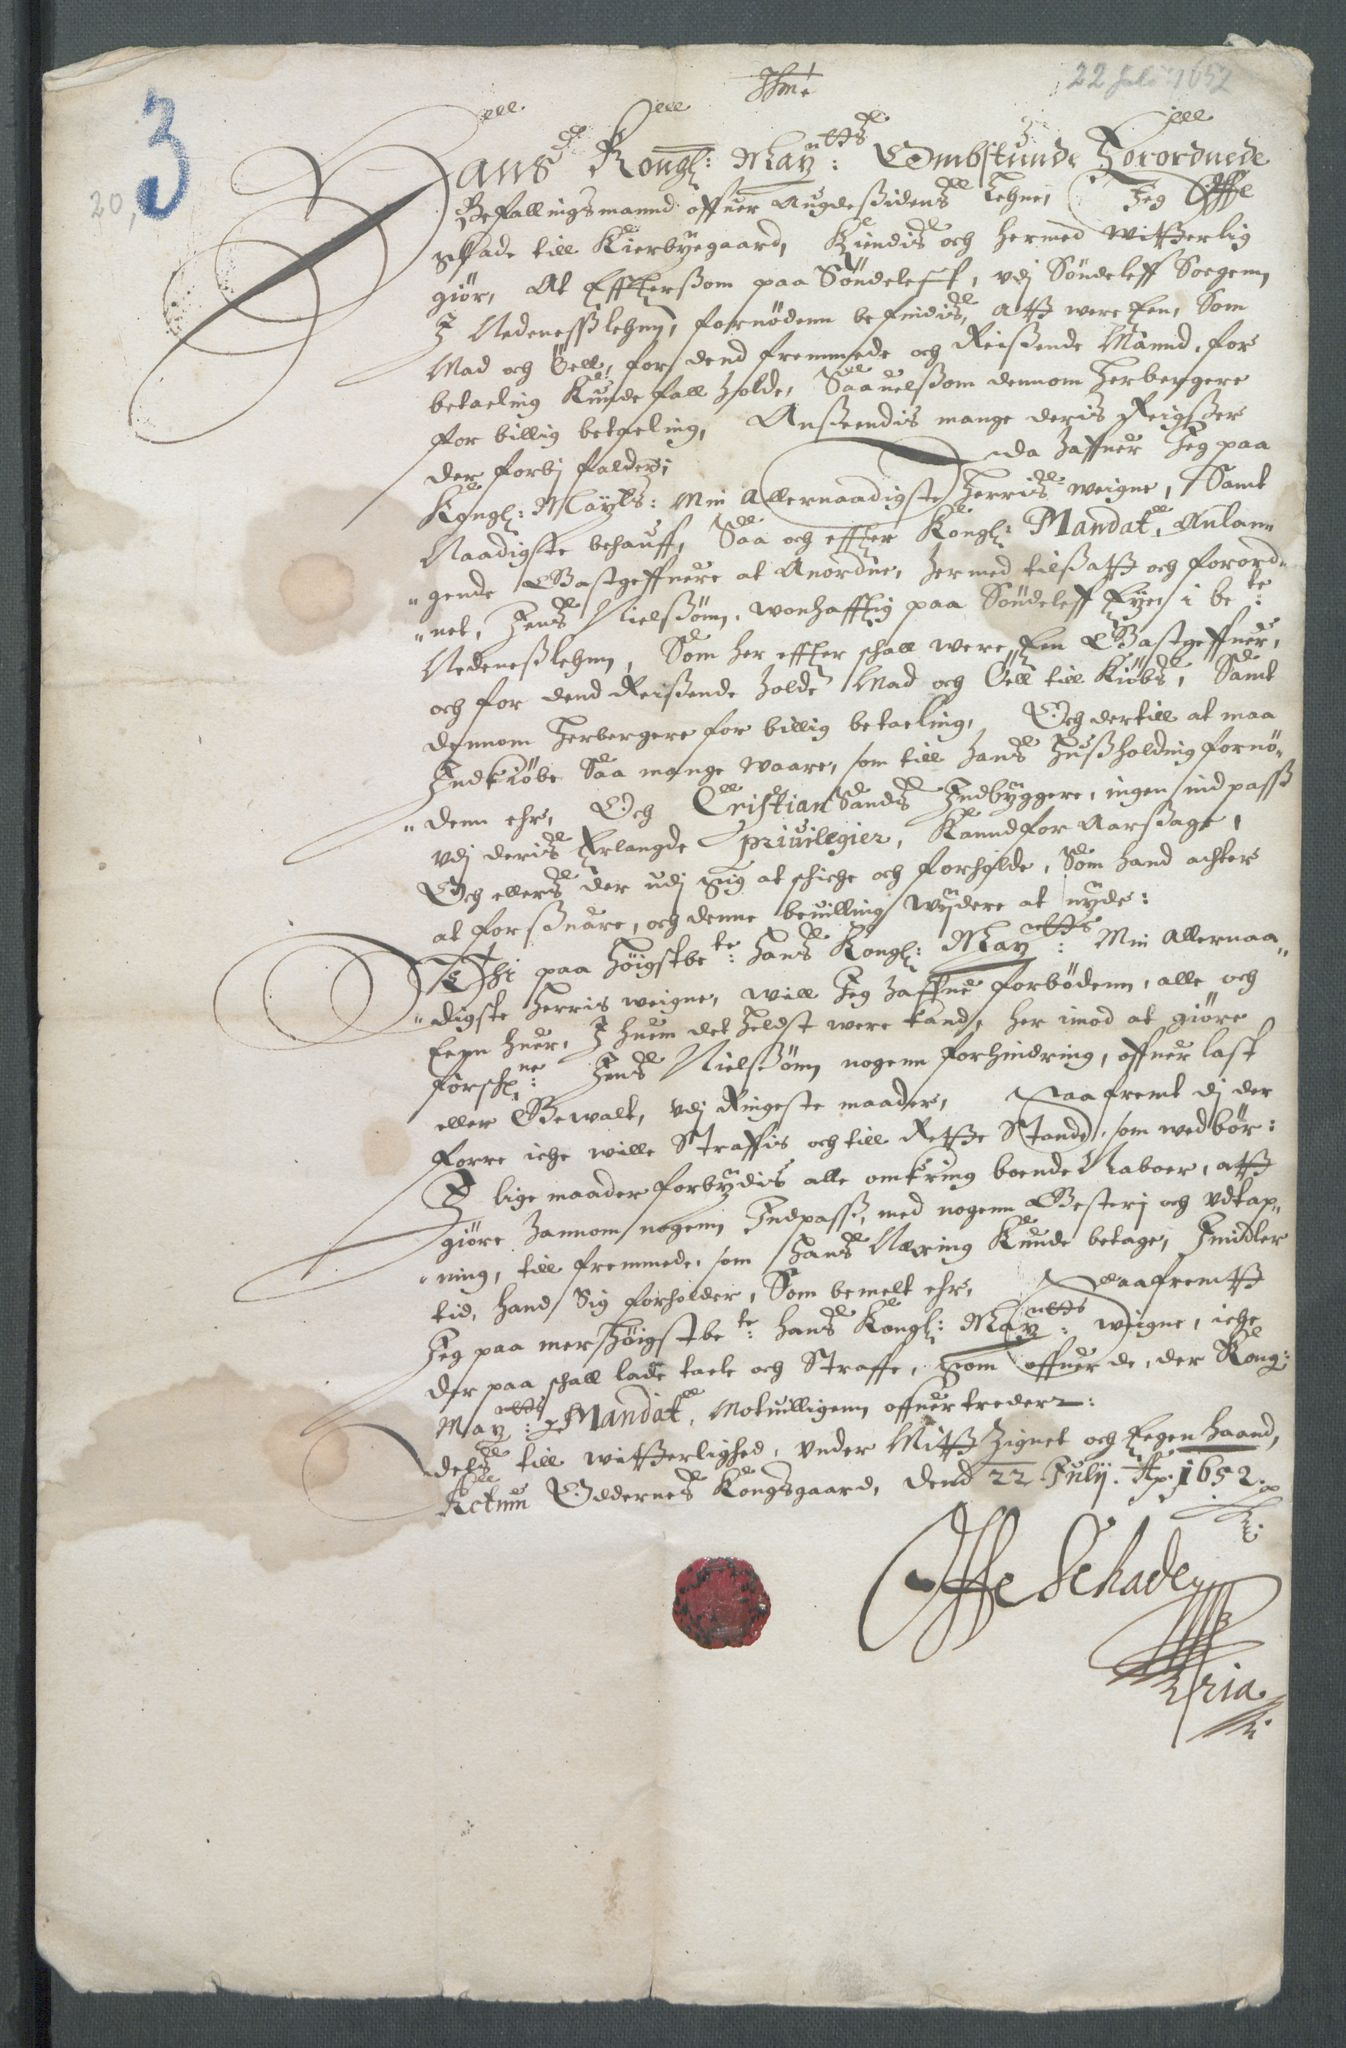 Ihm:
22 Juli 1652
3
20,
Hans Kongl: May:tts Ombstunde Forordnede
Befallingsmannd offuer Augdesidens Lehne, Jeg Offe
Skade till Kierbyegaard, Kiendis och hermed witterlig
giör, At Effterssom paa Söndeleff, vdj Söndeleff Soegenn
I Nedenesslehnn, fornödenn befindis, att were Een, Som
Mad och Öell, for dend fremmede och Reissende Mannd, for
betaeling Kunde fall holde, Saauelssom dennom Herbergere
for billig betaeling, Ansseendis mange deris Reigsser
der forbj falder;
da haffuer Jeg paa
Kongl: Maytts: Min Allernaadigste Herris weigne, Samt
Naadigste behauff, Saa och effter Kongl: Mandat, Anlan-
gende Gastgeffuere at Anordne, hermed tilsatt och forord-
net, Jens Nielssönn, wonhafftig paa Söndeleff Eyet i be:te
Nedenesslehnn, Som her effter schall were Een Gastgeffuer,
och for dend Reissende holde Mad och Öell till Kiöbs, Samt
dennom Herbergere for billig betaeling, Och dertill at maa
Indkiöbe Saa mange waare, som till hans Hussholding fornö-
denn ehr, Och Cristian Sands Indbyggere, ingen indpass
vdj deris Erlangde priuilegier, Kannd foraarsage,
Och ellers der udj Sig at schicke och forholde, Som hand achter
at forsuare, och denne beuilling wydere at nyde:
Thi paa Höigstbe:te Hans Kongl: May:tts Min Allernaa-
digste Herris weigne, will Jeg haffue forbödenn, alle och
Eenn huer, I huem det helst were kand, her imod at giöre
forsch:ne Jens Nielssönn nogenn forhindring, offuer last
eller Gewalt, vdj Ringeste maader, Saafremt dj der
forre iche wille Straffis och till Rette Stande, som wedbör:
I lige maader forbydis alle omkring boende Naboer, att
giöre hannom nogenn Indpass, med nogenn Gesterj och vdtap-
ning, till fremmede, som Hans Næring Kunde betage, Imidler
tid, hand Sig forholder, Som bemelt ehr, Saafremtt
Jeg paa mer Höigstbe:te Hans Kongl: May:tts weigne, iche
der paa schall lade taele och Straffe, som offuer de, der Kong:
May:tts Mandat, Motuilligenn offuertreder:
dets till witterlighed, vnder Mitt Zignet och Eegen haand,
Actum Oddernes Kongsgaard, dend 22 Julij. Ao. 1652.
Offe Schade
Mpria